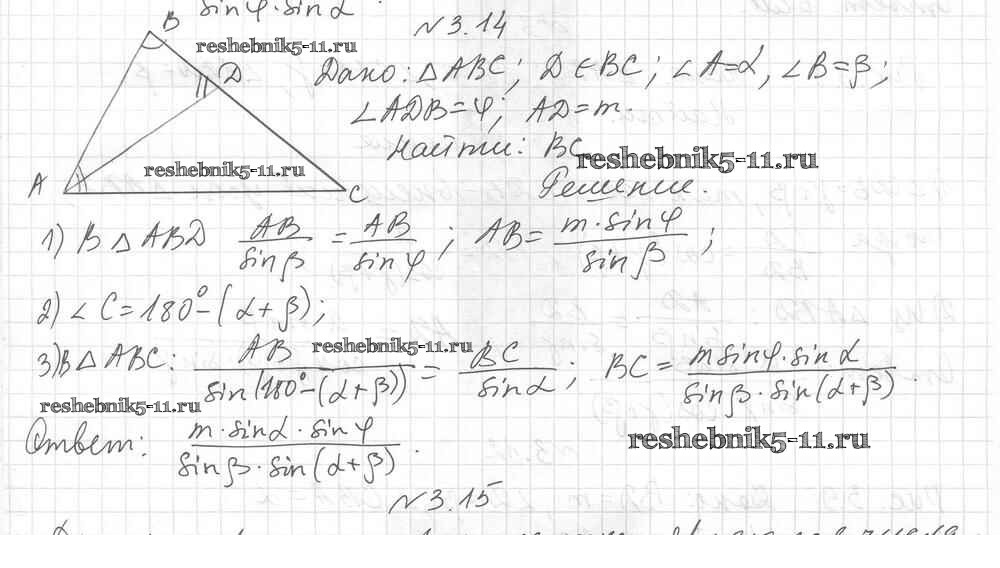 sinφ·sinα
№3.14
B
D
A
C
reshebnik5-11.ru
Дано: △ABC; D∈BC; ∠A=α, ∠B=β;
∠ADB=φ; AD=m.
Найти: BC
reshebnik5-11.ru
reshebnik5-11.ru
Решение.
1) В △ABD AB/sinβ = AB/sinφ; AB = m·sinφ/sinβ;
2) ∠C=180°-(α+β);
3) В △ABC: AB/sin(180°-(α+β)) = BC/sinα; BC = msinφ·sinα/sinβ·sin(α+β).
reshebnik5-11.ru
reshebnik5-11.ru
Ответ: m·sinα·sinφ/sinβ·sin(α+β).
reshebnik5-11.ru
№3.15